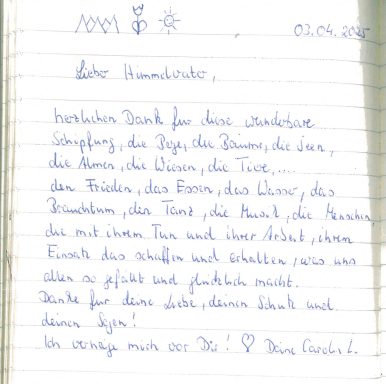 03.04.2025
Lieber Himmelvater,
herzlichen Dank für diese wunderbare
Schöpfung, die Berge, die Bäume, die Seen,
die Almen, die Wiesen, die Tiere,...
den Frieden, das Essen, das Wasser, das
Brauchtum, den Tanz, die Musik, die Menschen,
die mit ihrem Tun und ihrer Arbeit, ihrem
Einsatz das schaffen und erhalten, was uns
allen so gefällt und glücklich macht.
Danke für deine Liebe, deinen Schutz und
deinen Segen!
Ich verneige mich vor Dir! ♡ Deine